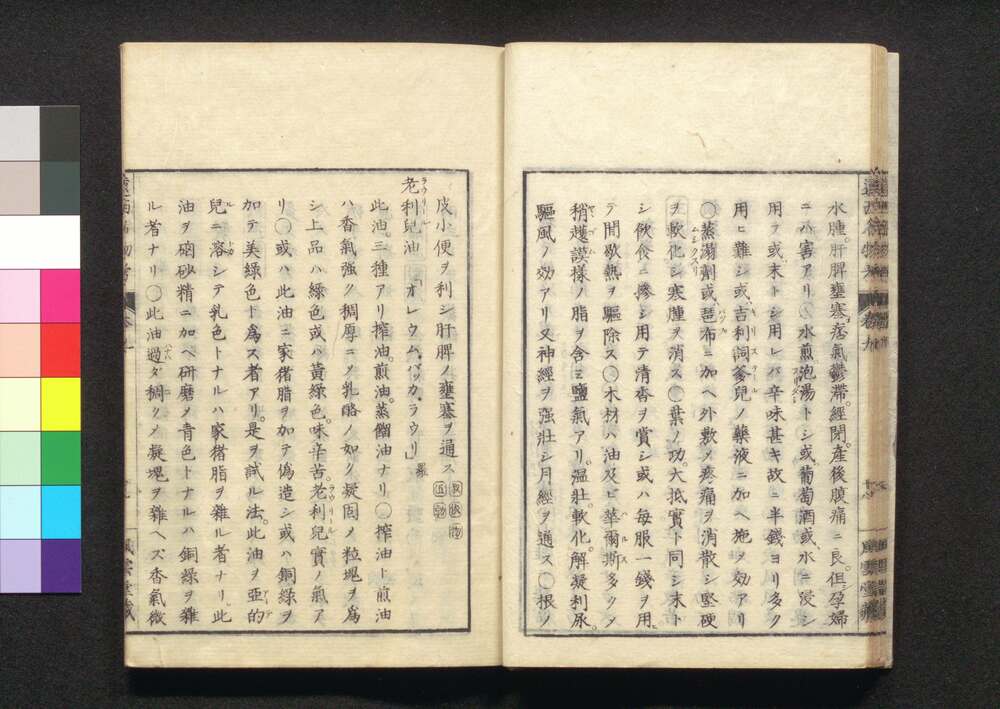 水腫。肝脾壅塞。痞氣鬱滯。經閉。產後腹痛ニ良。但シ孕婦
ニハ害アリ〇水煎泡湯トシ或ハ葡萄酒或ハ水ニ浸シ
用ヲ或ハ末トシ用レバ辛味甚キ故ニ半錢ヨリ多ク
用ヒ難シ或ハ吉利詞爹兒ノ藥液ニ加ヘ施ヲ効アリ
〇蒸溻劑或ハ琶布ニ加ヘ外敷メ疼痛ヲ消散シ堅硬
ヲ軟化シ寒腫ヲ消ス〇葉ノ功。大抵實ト同シ末ト
シ飲食ニ摻シ用テ清香ヲ賞シ或ハ每服一錢ヲ用ヒ
テ間歇熱ヲ驅除ス〇木材ハ油及ビ華爾斯多クメ
稍護謨樣ノ脂ヲ含ミ鹽氣アリ。溫壯。軟化。解凝利尿。
驅風ノ効アリ又神經ヲ强壯シ月經ヲ通ス〇根ノ
皮小便ヲ利シ肝脾ノ壅塞ヲ通ス
老利兒油 「オレウム・バッカ・ラウリ」羅
此油。三種アリ搾油。煎油。蒸餾油ナリ〇搾油ト煎油
ハ香氣强ク稠厚ニメ乳酪ノ如ク凝固メ粒塊ヲ爲
シ上品ハ綠色或ハ黃綠色。味辛苦。老利兒實ノ氣ア
リ〇或ハ此油ニ家猪脂ヲ加テ偽造シ或ハ銅綠ヲ
加テ美綠色ト爲ス者アリ。是ヲ試ル法。此油ヲ亞的
兒ニ溶シテ乳色トナルハ家猪脂ヲ雜ル者ナリ。此
油ヲ硇砂精ニ加ヘ研磨メ青色トナルハ銅綠ヲ雜
ル者ナリ〇此油過ダ稠クメ凝塊ヲ雜ヘズ香氣微